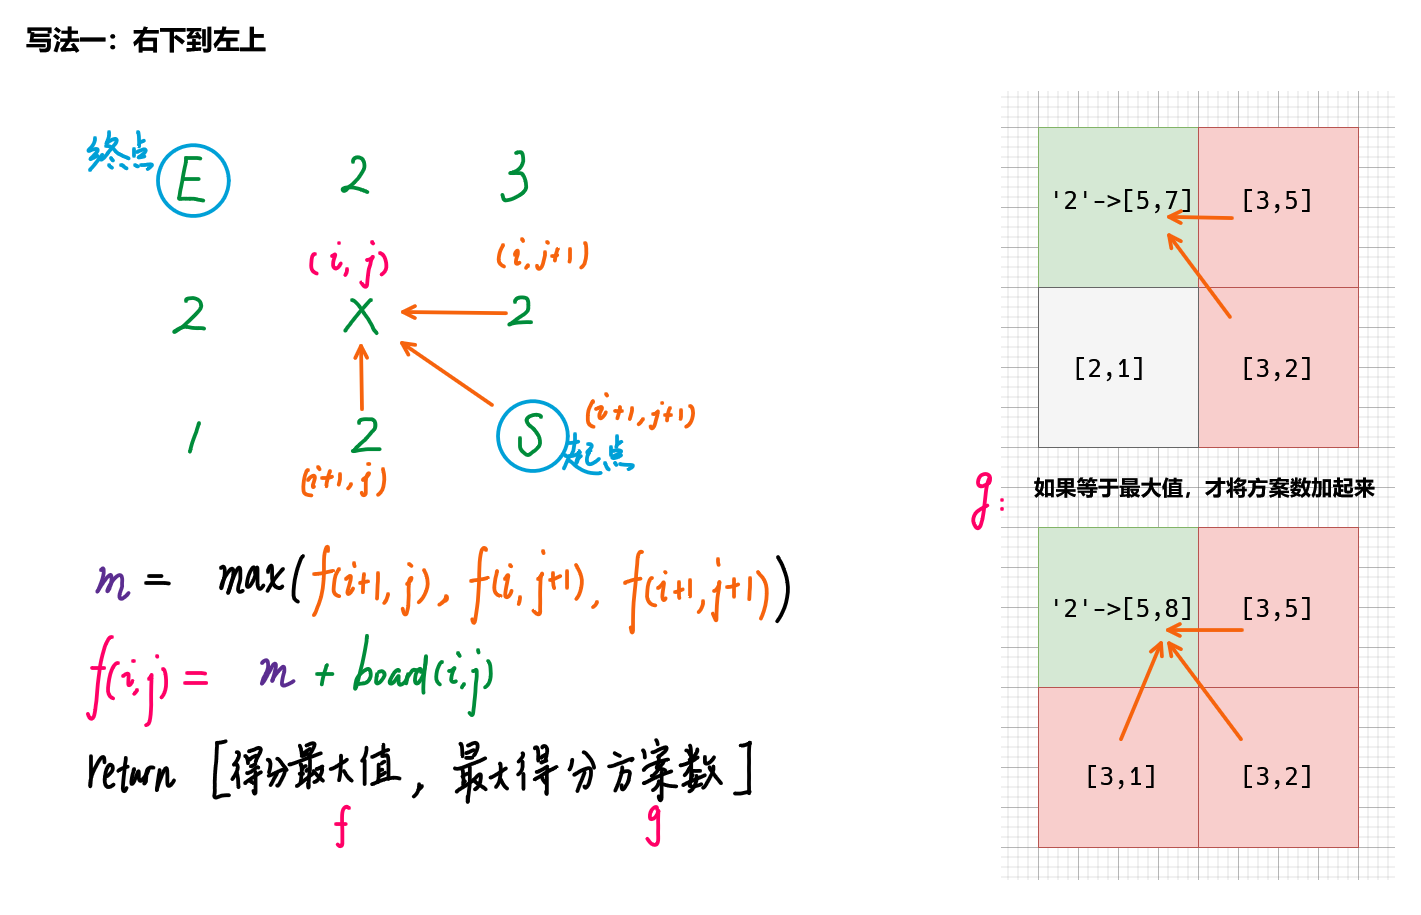 写法一：右下到左上
终点 E 2 3
(i, j) (i, j+1)
2 X 2
1 2 S (i+1, j+1)
起点
(i+1, j)
m = max(f(i+1, j), f(i, j+1), f(i+1, j+1))
f(i,j) = m + board(i,j)
return [得分最大值, 最大得分方案数]
f g
'2'->[5,7] [3,5]
[2,1] [3,2]
g: 如果等于最大值，才将方案数加起来
'2'->[5,8] [3,5]
[3,1] [3,2]